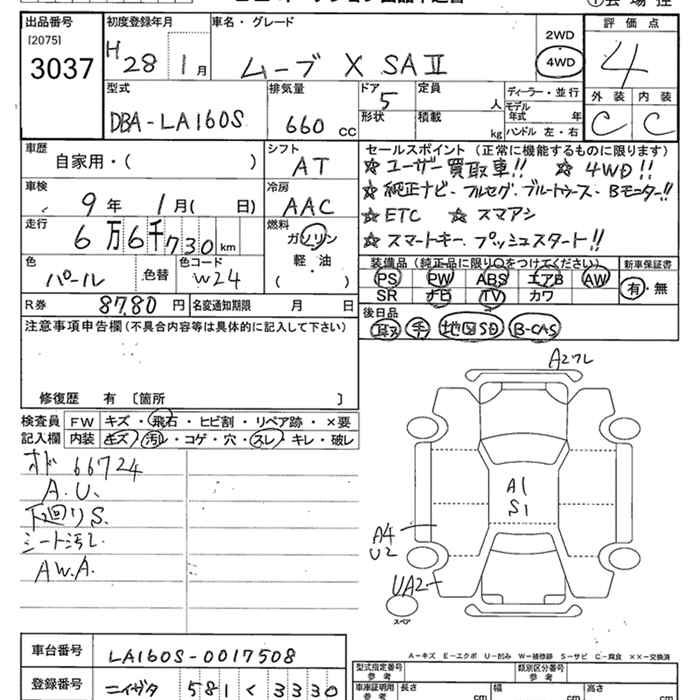 出品番号 初度登録年月 車名・グレード 評価点
[2075]
3037
H28 1月 ムーブ X SAⅡ 2WD 4WD 4
外装 内装
C C
型式 排気量 ドア 定員 ディーラー・並行
DBA-LA160S 660cc 5 人 モデル年式 年
形状 積載 kg ハンドル 左・右
車歴 シフト
自家用・( ) AT
車検 冷房
9年 1月( 日) AAC
走行 燃料
6万6千730km ガソリン 軽・油 ( ・ )
色 色替 色コード
パール W24
R券 8780円 名変通知期限 月 日
セールスポイント(正常に機能するものに限ります)
☆ユーザー買取車!! ☆4WD!!
☆純正ナビ・フルセグ・ブルートゥース・Bモニター!!
☆ETC ☆スマアシ
☆スマートキー、プッシュスタート!!
装備品(純正品に限り○をつけてください) 新車保証書
PS PW ABS エアB AW 有・無
SR ナビ TV カワ
後日品
取 手 地図SD B-CAS
注意事項申告欄(不具合内容等は具体的に記入して下さい)
修復歴 有〔箇所 〕
検査員 FW キズ・飛石・ヒビ割・リペア跡・×要
記入欄 内装 キズ・汚レ・コゲ・穴・スレ・キレ・破レ
オド 66724
A.U.
下廻りS.
シート汚レ
A.W.A.
A2フレ
A1
S1
A4
U2
UA2
スペア
A-キズ E-エクボ U-凹み W-補修跡 S-サビ C-腐食 ××-交換済
車台番号 LA160S-0017508
登録番号 ニイガタ 581 く 3330
型式指定番号 参考 類別区分番号 参考
車庫証明用 参考 長さ cm 幅 cm 高さ cm